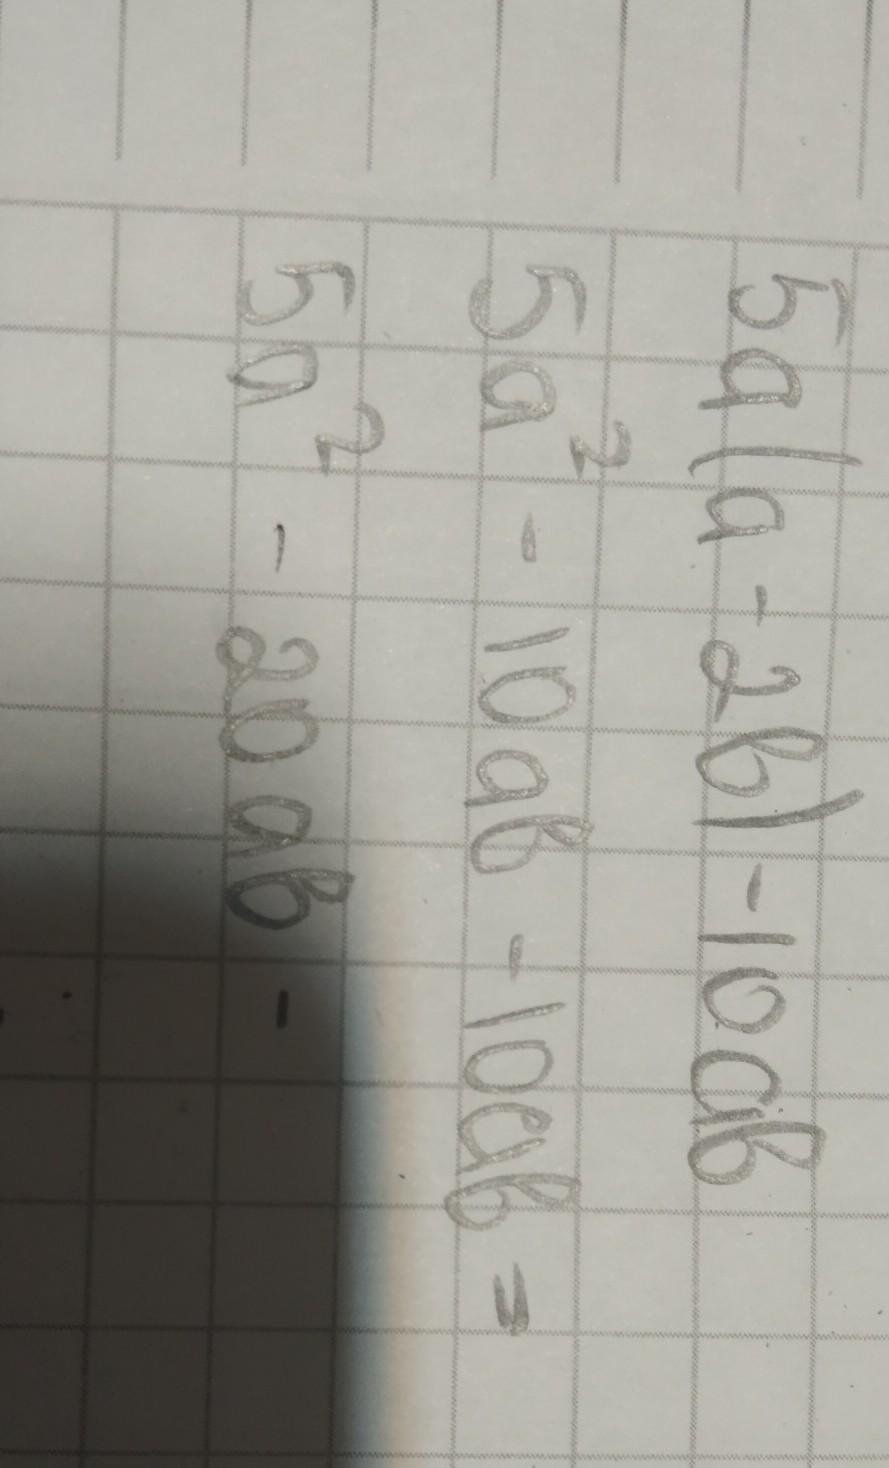 5a(a-2b)-10ab
5a² - 10ab - 10ab =
5a² - 20ab -